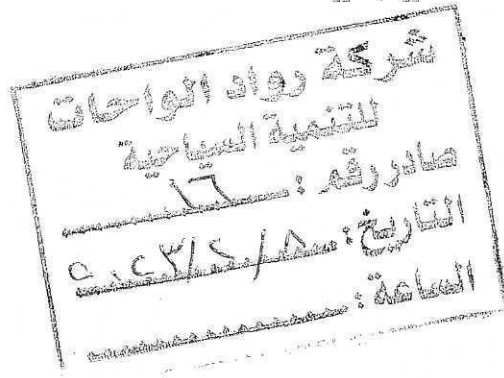 شركة رواد الواحات
للتنمية السياحية
صادر رقم : ١٦
التاريخ : ٢٠٢٣/٢/٨
الساعة :